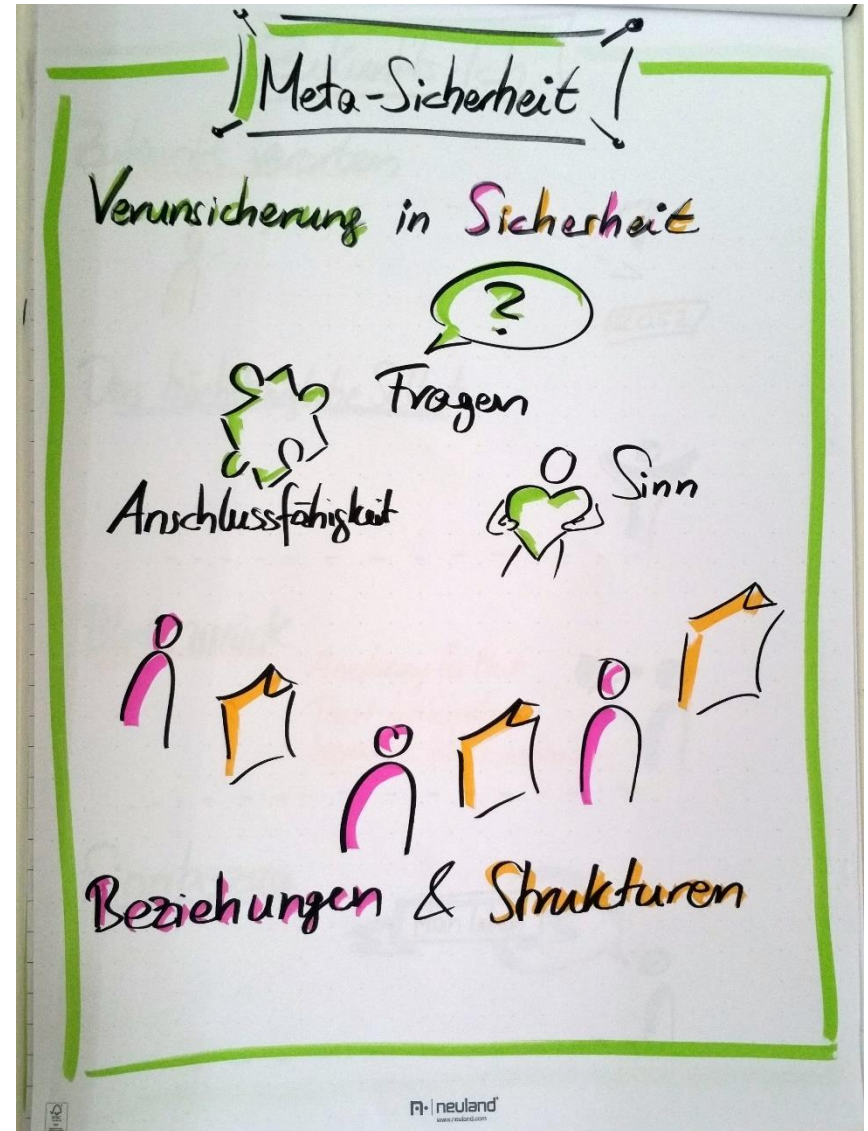 Meta-Sicherheit
Verunsicherung in Sicherheit
?
Fragen
Anschlussfähigkeit
Sinn
Beziehungen & Strukturen
neuland
www.neuland.com